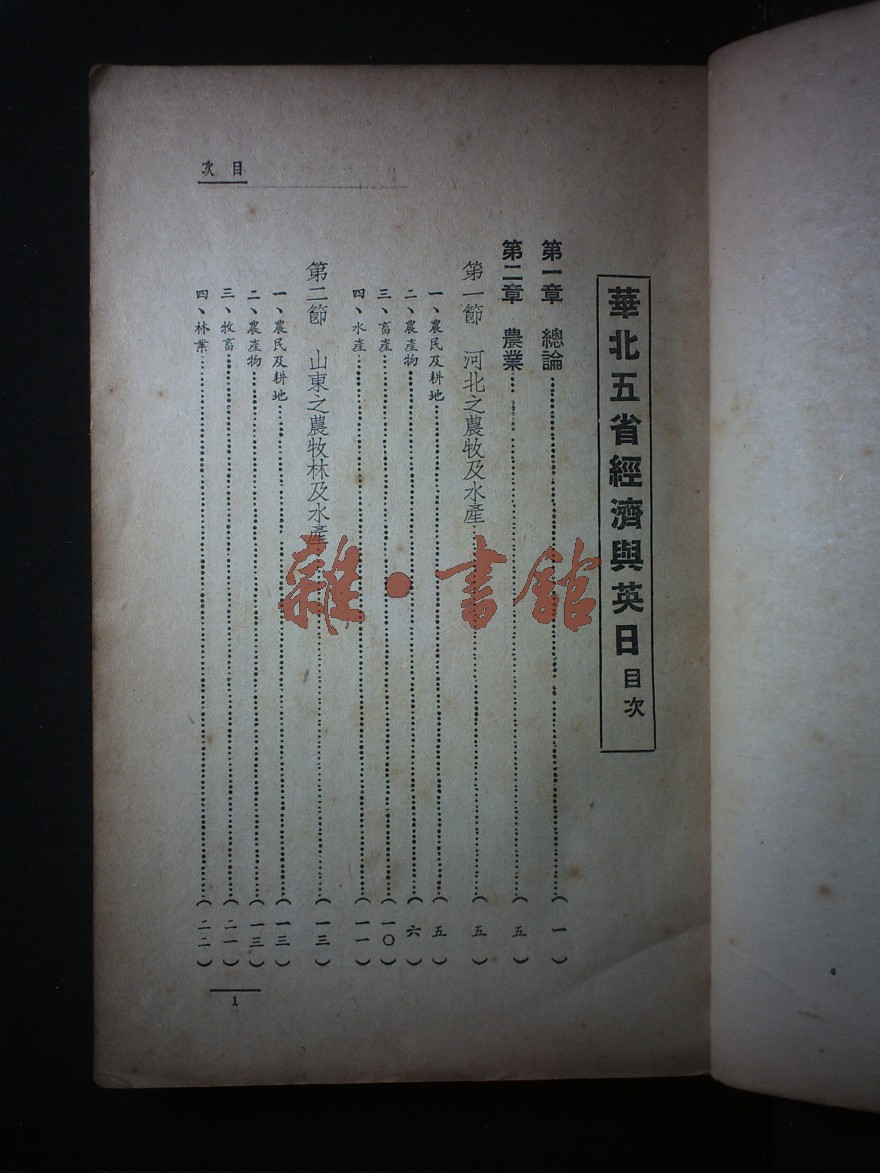 華北五省經濟與英日目次
第一章　總論……（一）
第二章　農業……（五）
第一節　河北之農牧及水產……（五）
一、農民及耕地……（五）
二、農產物……（六）
三、畜產……（一〇）
四、水產……（一一）
第二節　山東之農牧林及水產……（一三）
一、農民及耕地……（一三）
二、農產物……（一三）
三、牧畜……（二一）
四、林業……（二二）
次目
1
雜·書館